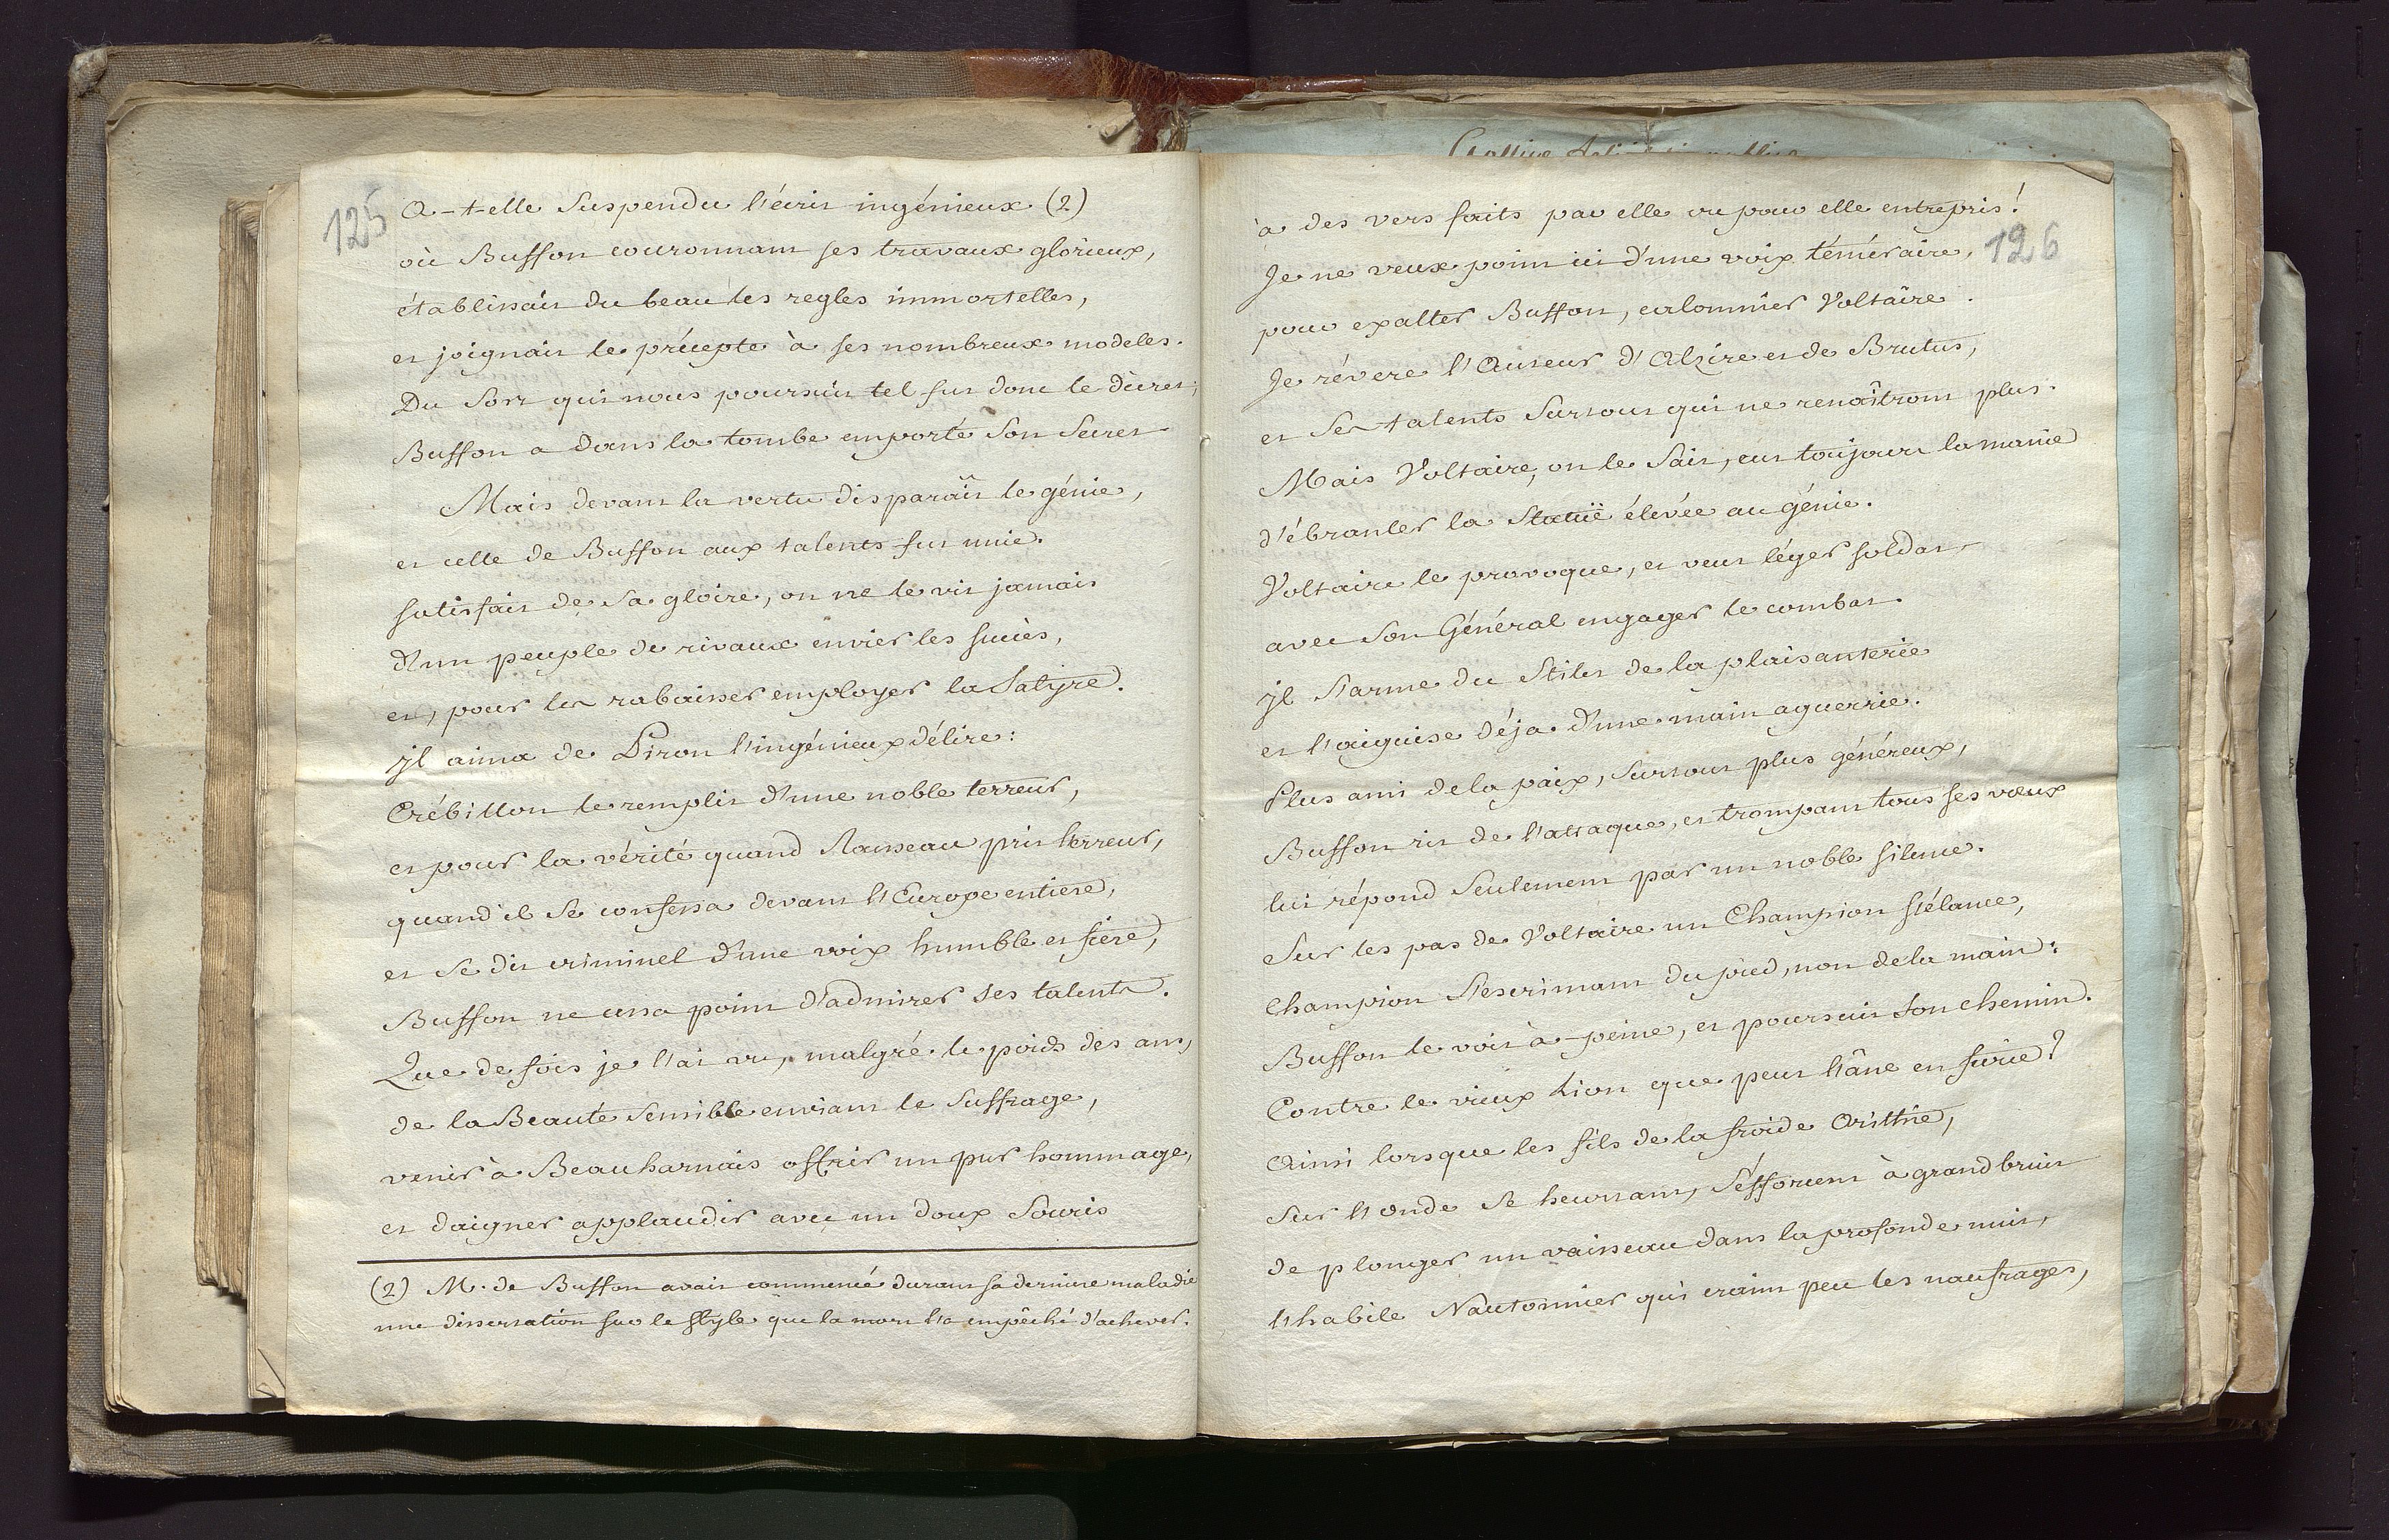 125
A-t-elle Suspendu l'écrit ingénieux (2)
où Buffon couronnant ses travaux glorieux,
établissait du beau les regles immortelles,
et joignait le précepte à ses nombreux modeles.
Du Sort qui nous poursuit tel fut donc le décret;
Buffon a dans la tombe emporté Son Secret
Mais devant la vertu disparaît le génie,
et celle de Buffon aux talents fut unie.
satisfait de Sa gloire, on ne le vit jamais
d'un peuple de rivaux envier les succès,
et, pour les rabaisser employer la Satyre.
jl aima de Piron l'ingénieux délire:
Crébillon le remplit d'une noble terreur,
et pour la vérité quand Rousseau prit l'erreur,
quand il Se confessa devant l'Europe entiere,
et Se dit criminel d'une voix humble et fiere,
Buffon ne cessa point d'admirer ses talents.
Que de fois je l'ai vu, malgré le poids des ans,
de la Beauté Sensible enviant le Suffrage,
venir à Beauharnais offrir un pur hommage,
et daigner applaudir avec un doux Souris
(2) M. de Buffon avait commencé durant sa derniere maladie
une dissertation sur le style que la mort l'a empêché d'achever.
à des vers faits par elle ou pour elle entrepris!
126
Je ne veux point ici d'une voix téméraire,
pour exalter Buffon, calomnier Voltaire.
Je révere l'Auteur d'Alzire et de Brutus,
et Ses talents Surtout qui ne renaîtront plus.
Mais Voltaire, on le Sait, eut toujours la manie
d'ébranler la Statuë élevée au génie.
Voltaire le provoque, et veut léger soldat
avec Son Général engager le combat.
jl S'arme du Stilet de la plaisanterie
et l'aiguise déja d'une main aguerrie.
Plus ami de la paix, Surtout plus généreux,
Buffon rit de l'attaque, et trompant tous ses vœux
lui répond Seulement par un noble silence.
Sur les pas de Voltaire un Champion s'élance,
Champion S'escrimant du pied, non de la main:
Buffon le voit à-peine, et poursuit Son chemin.
Contre le vieux Lion que peut l'âne en furie?
Ainsi lorsque les fils de la froide Orithie,
Sur l'onde Se heurtant, S'efforcent à grand bruit
de plonger un vaisseau dans la profonde nuit,
l'habile Nautonnier qui craint peu les naufrages,